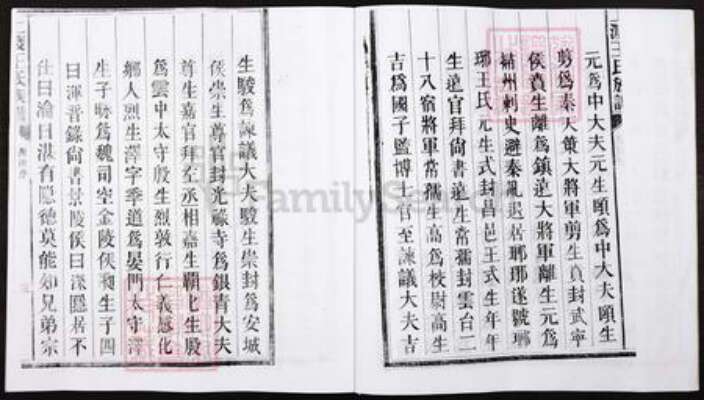 元為中大夫元生頤為中大夫頤生
翦為秦大將軍翦生賁封武寧
侯賁生離為鎮遠大將軍離生元為
州刺史避秦亂遷居瑯琊遂號瑯
琊王氏元生式封昌邑王式生年年
生遠官拜尚書遠生常孺封雲台二
十八宿將軍常孺生高為校尉高生
吉為國子監博士官至諫議大夫吉
生駿為諫議大夫駿生崇封為安城
侯崇生尊官封光祿寺為銀青大夫
尊生嘉官拜丞相嘉生霸七生殷
為雲中太守殷生烈敦行仁義感化
鄉人烈生澤字季道為雁門太守澤
生子昶為魏司空金陵侯昶生子四
曰渾晉錄尚書景陵侯曰深隱居不
仕曰淪曰湛有隱德莫能知兄弟宗
FamilySearch